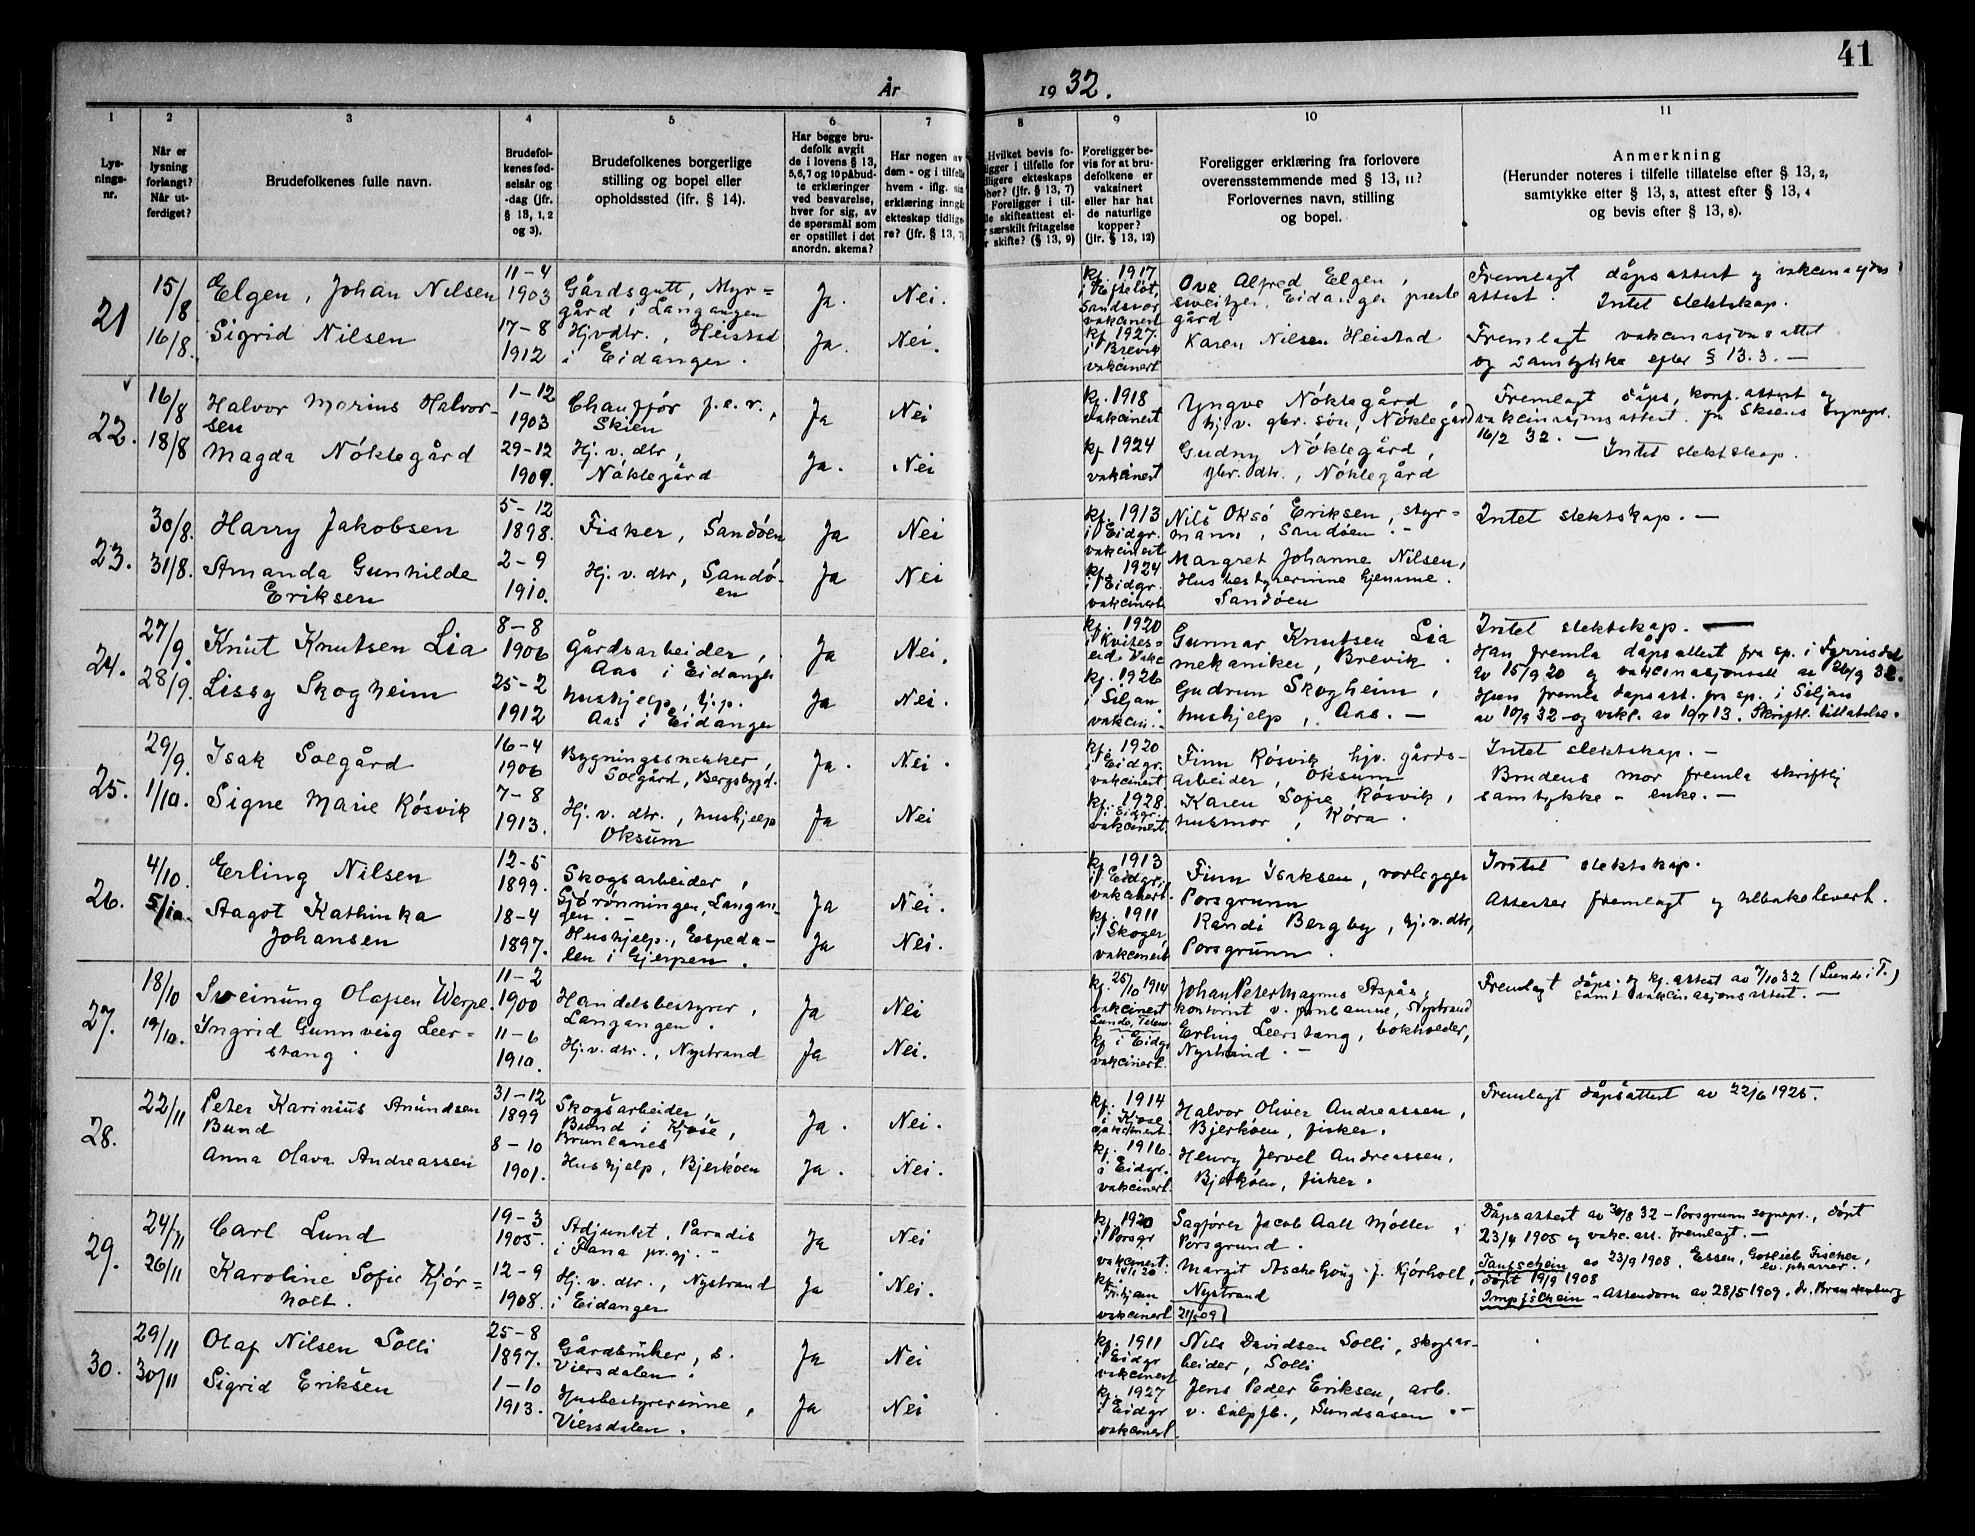 41
År 1932.
1 2 3 4 5 6 7 8 9 10 11
Lysnings-
nr.
Når er
lysning
forlangt?
Når ut-
ferdiget?
Brudefolkenes fulle navn.
Brudefol-
kenes fød-
selsår og
-dag (jfr.
§ 13, 1, 2
og 3).
Brudefolkenes borgerlige
stilling og bopel eller
opholdssted (jfr. § 14).
Har begge bru-
defolk avgit
de i lovens § 13,
5,6,7 og 10 påbud-
te erklæringer
ved besvarelse,
hver for sig, av
de spørsmål som
er opstillet i det
anordn. skema?
Har nogen av
dem - og i tilfelle
hvem - iflg. sin
erklæring inngått
ekteskap tidlige-
re? (jfr. § 13, 7)
Hvilket bevis fo-
ligger i tilfelle for
dligere ekteskaps
pher? (jfr. § 13, 7)
Foreligger i til-
le skifteattest el-
r særskilt fritagelse
r skifte? (§ 13, 9)
Foreligger be-
vis for at bru-
defolkene er
vaksinert
eller har hat
de naturlige
kopper?
(jfr. § 13, 12)
Foreligger erklæring fra forlovere
overensstemmende med § 13, 11?
Forlovernes navn, stilling
og bopel.
Anmerkning
(Herunder noteres i tilfelle tillatelse efter § 13, 2,
samtykke efter § 13, 3, attest efter § 13, 4
og bevis efter § 13, 8).
21
15/8
16/8.
Elgen, Johan Nilsen
Sigrid Nilsen
11-4
1903
17-8
1912
Gårdsgutt, Myr=
gård i Langangen
Hjvdtr., Heistad
i Eidanger.
Ja. Nei.
Ja. Nei.
kf. 1917
i Efteløt,
Sandsvær
vakcinert
kf. 1927.
i Brevik
vakcinert
Ove Alfred Elgen,
sveitzer, Eidanger preste
gård.
Karen Nilsen Heistad
Fremlagt dåpsattest og vakcinasjons
attest. Intet slektskap.
Fremlagt vakcinasjonsattest
og samtykke efter § 13.3. —
22.
16/8
18/8
Halvor Marius Halvor-
sen
Magda Nöklegård
1-12
1903
29-12
1909.
Chaufför f.e.r.,
Skien
Hj. v. dtr,
Nöklegård
Ja Nei
Ja. Nei
kf. 1918
vakcinert
kf 1924
vakcinert
Yngve Nöklegård,
hj. v. gbr. sön, Nöklegård
Gudny Nöklegård,
gbr. dtr., Nöklegård
Fremlagt dåps, konf. attest og
vakcinasjonsattest. fra Skiens sognepr.
16/2 32. —
Intet slektskap.
23.
30/8.
31/8.
Harry Jakobsen
Amanda Gunhilde
Eriksen
5-12
1898.
2-9
1910.
Fisker, Sandöen
Hj. v. dtr, Sandö-
en
Ja Nei
Ja Nei
kf. 1913
i Eidgr.
vakcinert
kf. 1924
i Eidgr.
vakcinert
Nils Oksö Eriksen, styr=
mann, Sandöen. -
Margret Johanne Nilsen,
Husbestyrerinne hjemme.
Sandöen
Intet slektskap. —
24.
27/9.
28/9.
Knut Knutsen Lia
Lissy Skogheim
8-8
1906
25-2
1912
gårdsarbeider,
Aas i Eidanger
hushjelp, hj. p.
Aas i Eidanger
Ja Nei.
Ja Nei.
kf. 1920
i Kvites=
eid. Vakc
kf. 1926
i Siljan
vakcin. -
Gunnar Knutsen Lia
mekaniker, Brevik.
Gudrun Skogheim,
hushjelp, Aas. —
Intet slektskap. —
Han fremla dåpsattest fra sp. i Fyrrisdal
av 15/9 20 og vakcinasjonsatt av 26/9 32.
Hun fremla dåpsatt. fra sp. i Siljan
av 10/9 32 - og vakc. av 19/7 13. Skriftl. tillatelse.
25.
29/9.
1/10.
Isak Solgård
Signe Marie Rösvik
16-4
1906
7-8
1913.
Bygningssnekker,
Solgård, Bergsbygd.
Hj. v. dtr., hushjelp
Oksum
Ja. Nei.
Ja Nei
kf. 1920
i Eidgr.
vakcinert
kf. 1928.
i Eidgr.
vakcinert
Finn Rösvik hjv. gårds-
arbeider, Oksum
Karen Sofie Rösvik,
husmor, Kóra.
Intet slektskap. —
Brudens mor fremla skriftlig
samtykke - enke. —
26.
4/10.
5/10
Erling Nilsen
Aagot Kathinka
Johansen
12-5
1899.
18-4
1897.
Skogsarbeider,
Sjörönningen, Langan-
gen. -
Hushjelp., Espeda-
len i Gjerpen.
Ja Nei.
Ja Nei.
kf. 1913
i Eidgr.
vakcinert.
kf. 1911
i Skoger,
vakcinert
Finn Isaksen, rörlegger
Porsgrunn
Randi Bergby, hj. v. dtr,
Porsgrunn.
Intet slektskap.
Attester fremlagt og tilbakelevert.
27.
18/10
19/10.
Sveinung Olafsen Werpe.
Ingrid Gunnveig Leer-
stang.
11-2
1900
11-6
1910.
Handelsbestyrer,
Langangen.
Hj. v. dtr., Nystrand
Ja Nei
Ja Nei.
kf. 25/10 1914
vakcinert
Lunde, Telem.
kf i Eidgr
vakcinert.
Johan Peter Magnus Aspås,
kontorist v. jernbanne, Nystrand
Erling Leerstang, bokholder,
Nystrand. —
Fremlagt dåps. og kf. attest av 7/10 32 (Lunde i T.)
samt vakcinasjonsattest. —
28.
22/11
Peter Karinius Amundsen
Bund
Anna Olava Andreassen
31-12
1899
8-10
1901.
Skogsarbeider,
Bund i Kjose,
Brunlanes
Hushjelp, Bjerköen
Ja. Nei.
Ja. Nei.
kf. 1914
i Kjose
vakcinert
kf. 1916.
i Eidgr.
vakcinert.
Halvor Oliver Andreassen,
Bjerköen, fisker.
Henry Jervel Andreassen,
Bjerköen, fisker.
Fremlagt dåpsattest av 22/6 1925.
29.
24/11
26/11
Carl Lund
Karoline Sofie Kjör=
holt.
19-3
1905.
12-9
1908.
Adjunkt, Paradis
i Fana pr.gj. -
Hj. v. dtr., Nystrand
i Eidanger
Ja Nei
Ja Nei.
kf. 1920
i Porsgr
vakcinert.
vakcinert
21/5 09
Sagförer Jacob Aall Möller,
Porsgrund.
Margit Aschehoug f. Kjörholt,
Nystrand
Dåpsattest av 30/8 32 - Porsgrunn sognepr., döpt
23/4 1905 og vakc. att. fremlagt. —
Taufschein av 23/9 1908. Essen, Gotlieb Fischer,
ev. pharrer.
döpt 19/9 1908
Impfschein - Attendorn av 28/5 1909. Dr. Brandenburg
30.
29/11
30/11
Olaf Nilsen Solli
Sigrid Eriksen
25-8
1897.
1-10
1913.
Gårdbruker, s.
Viersdalen.
Husbestyrerinne,
Viersdalen.
Ja Nei
Ja Nei
kf. 1911
i Eidgr
vakcinert
kf. 1927
i Eidgr
vakcinert.
Nils Davidsen Solli, skogsar-
beider, Solli
Jens Peder Eriksen, arb.
v. salpfb., Sundsåsen. —